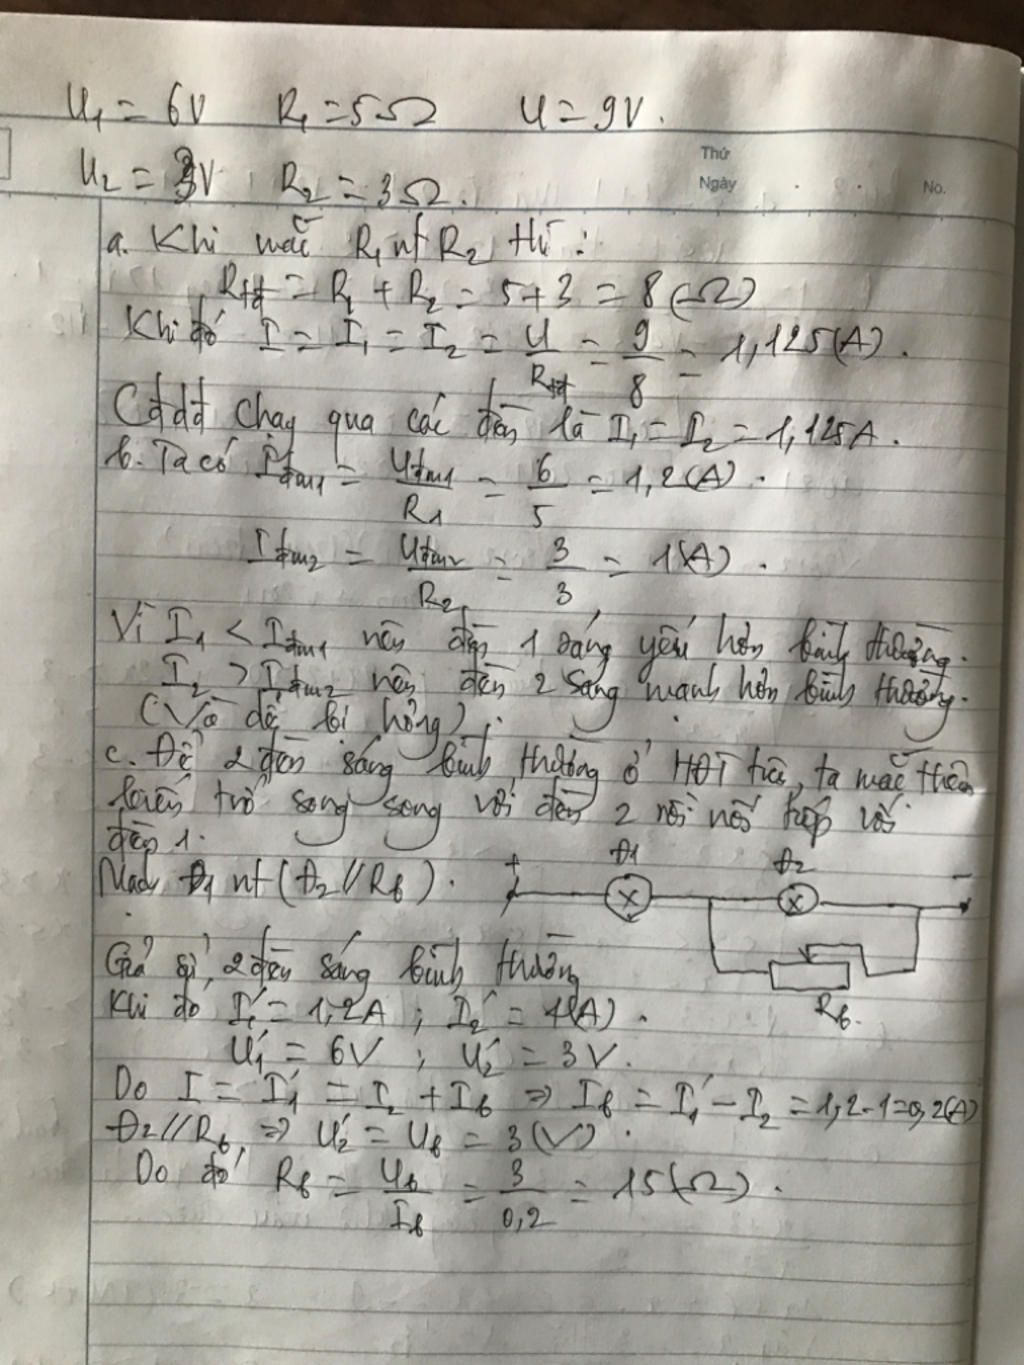 U₁ = 6V R₁ = 5Ω U = 9V.
U₂ = 3V R₂ = 3Ω.
Thứ
Ngày . . No.
a. Khi mắc R₁ nt R₂ thì :
Rtđ = R₁ + R₂ = 5 + 3 = 8 (Ω)
Khi đó I = I₁ = I₂ = U/Rtđ = 9/8 = 1,125(A).
Cđdđ chạy qua các đèn là I₁ = I₂ = 1,125A.
b. Ta có Iđm1 = Uđm1/R1 = 6/5 = 1,2(A).
Iđm2 = Uđm2/R2 = 3/3 = 1(A).
Vì I₁ < Iđm1 nên đèn 1 sáng yếu hơn bình thường.
I₂ > Iđm2 nên đèn 2 sáng mạnh hơn bình thường.
(Và dễ bị hỏng).
c. Để 2 đèn sáng bình thường ở HĐT trên, ta mắc thêm
biến trở song song với đèn 2 rồi nối tiếp với
đèn 1.
Mạch Đ1 nt (Đ₂ // Rb).
+ Đ1 Đ2 -
X X
Rb.
Giả sử, 2 đèn sáng bình thường
Khi đó I₁' = 1,2A ; I₂' = 1(A).
U₁' = 6V ; U₂' = 3V.
Do I = I₁' = I₂ + Ib => Ib = I₁' - I₂ = 1,2 - 1 = 0,2(A)
Đ2 // Rb => U₂' = Ub = 3(V).
Do đó Rb = Ub/Ib = 3/0,2 = 15(Ω).